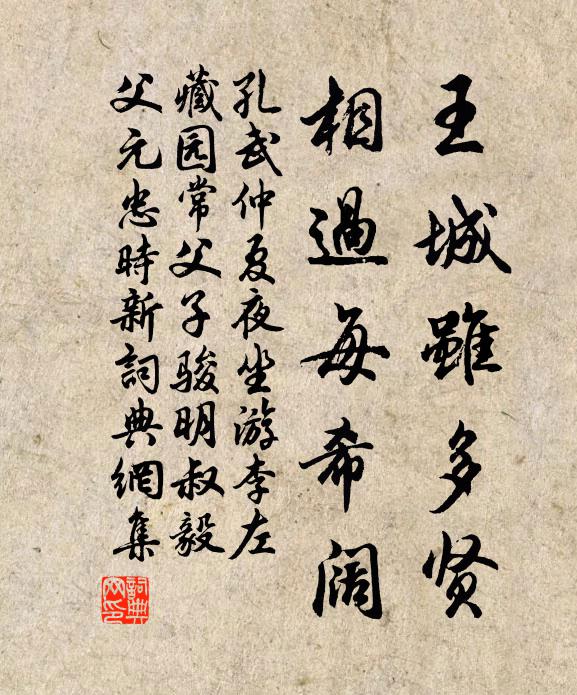 王城雖多贤
相過每希阔
孔武仲夏夜坐游李左
藏园常父子骏明叔毅
父元忠時新詞典網集
詞典
网印